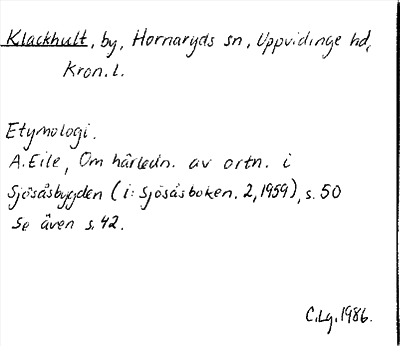 Klackhult, by, Hornaryds sn, Uppvidinge hd,
Kron. l.
Etymologi.
A. Eile, Om härledn. av ortn. i
Sjösåsbygden (i: Sjösåsboken. 2, 1959), s. 50
Se även s. 42.
C.Lg. 1986.